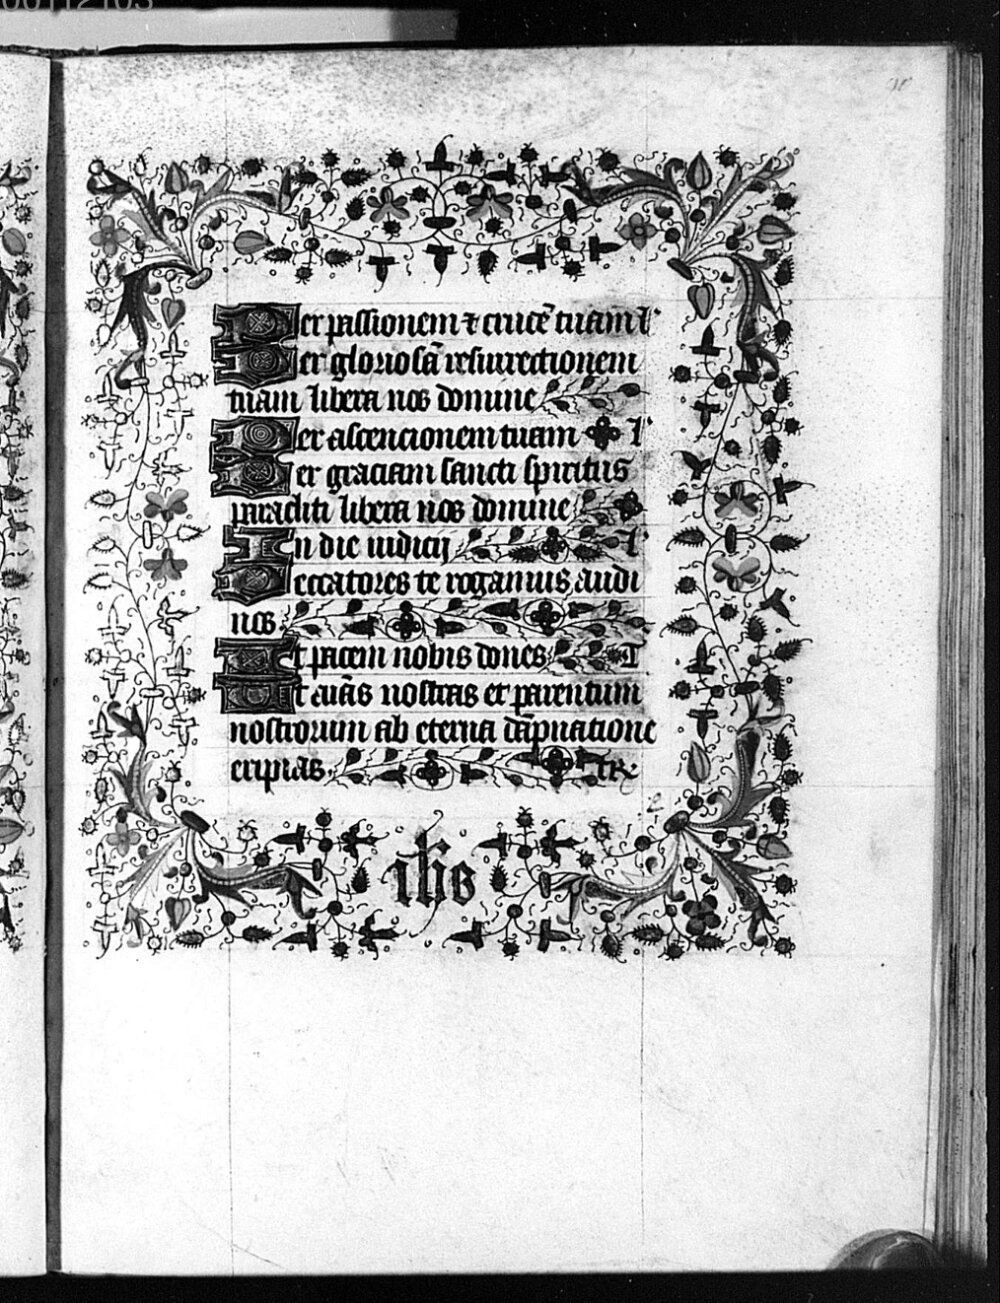 00112103
Per passionem ⁊ crucē tuam l'
Per gloriosā resurrectionem
tuam libera nos domine
Per ascencionem tuam l'
Per graciam sancti spiritus
paracliti libera nos domine
In die iudicij l'
Peccatores te rogamus audi
nos
Ut pacem nobis dones T
Ut aīas nostras et parentum
nostrorum ab eterna dāpnatione
eripias te R
ihs